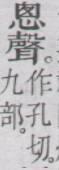 恩聲。作孔切。
九部。